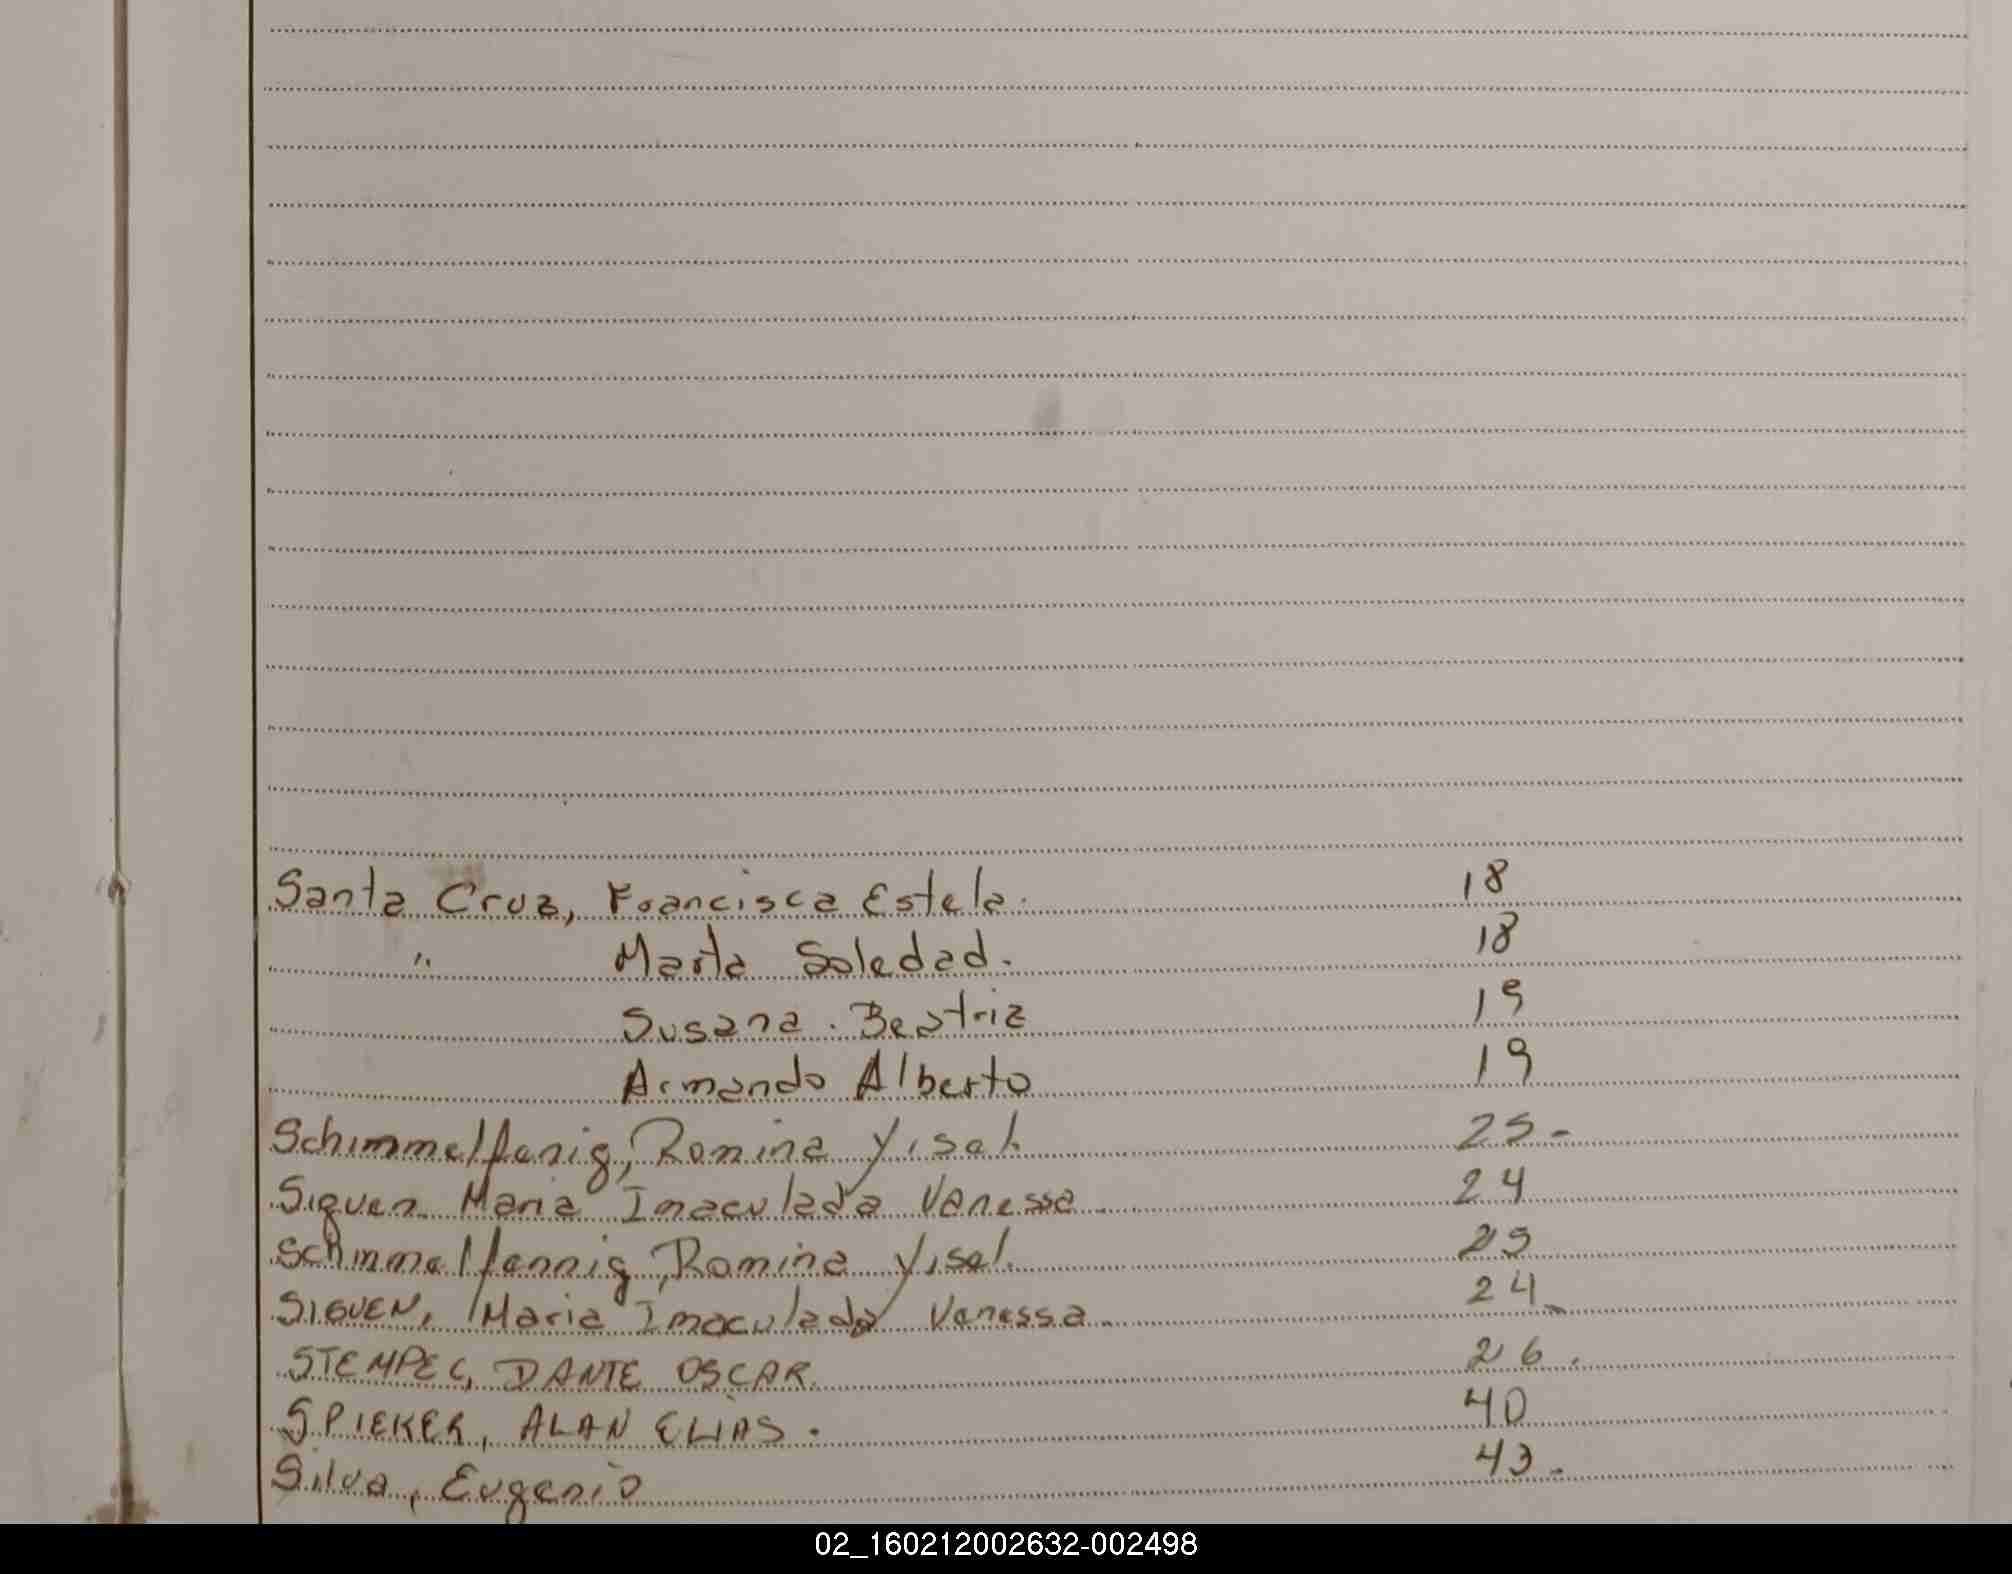 Santa Cruz, Francisca Estela. 18
" Marta Soledad. 18
Susana. Beatriz 19
Armando Alberto 19
Schimmelfenig, Romina Yisel. 25-
Siguen Maria Imaculada Vanessa 24
Schimmelfennig, Romina Yisel. 25
SIGUEN, Maria Imaculada Vanessa 24
STEMPEC, DANTE OSCAR. 26.
SPIEKER, ALAN ELIAS. 40
Silva, Eugenio 43.
02_160212002632-002498